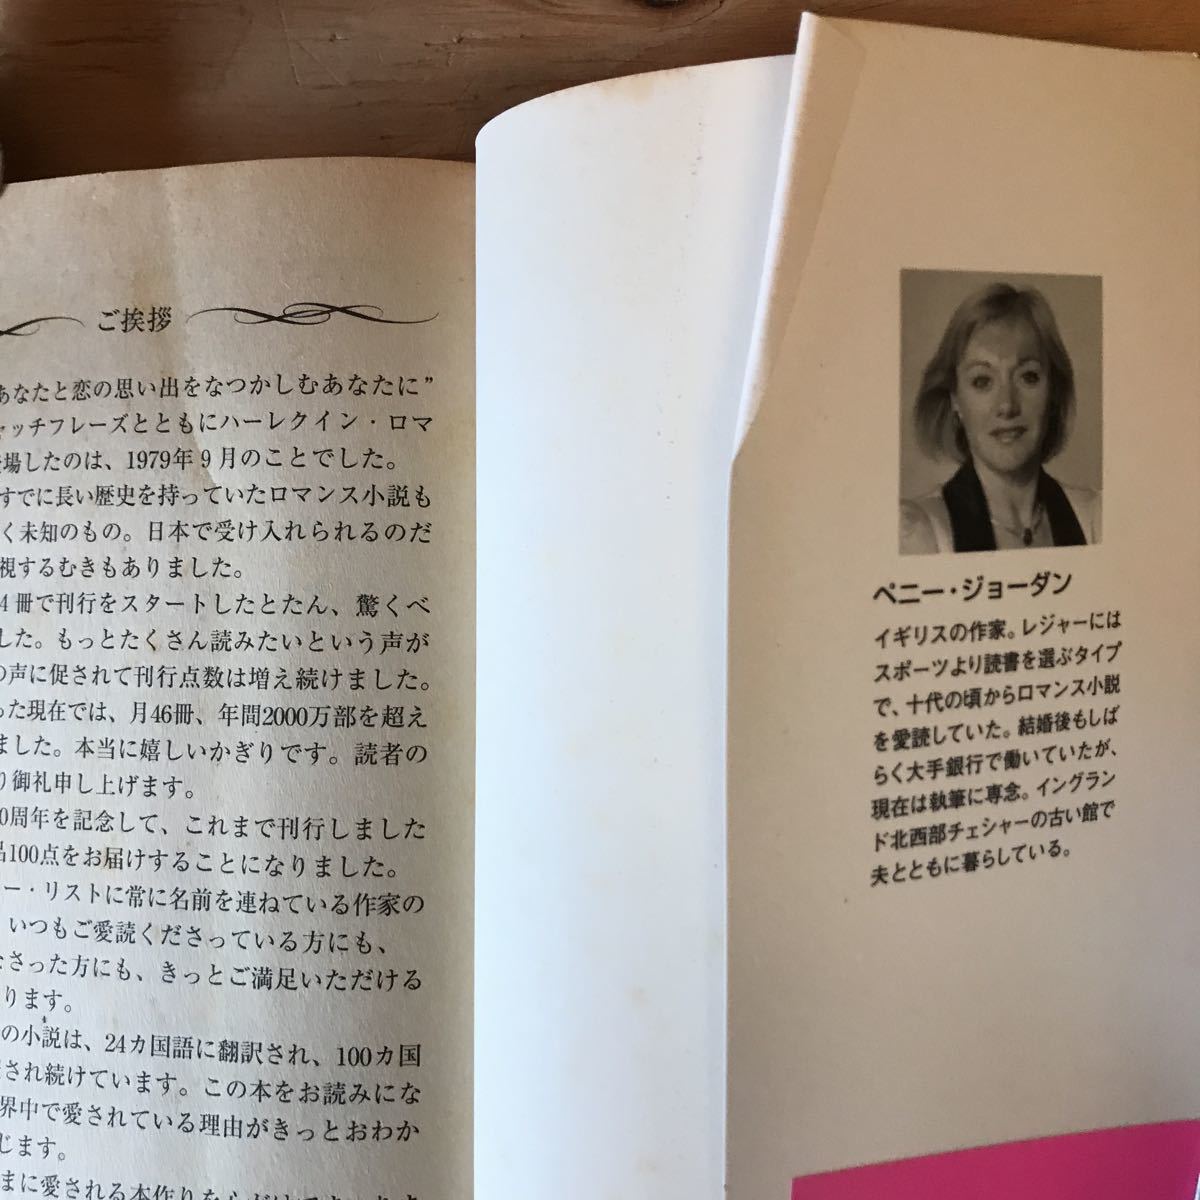 ご挨拶
あなたと恋の思い出をなつかしむあなたに”
ャッチフレーズとともにハーレクイン・ロマ
場したのは、1979年9月のことでした。
すでに長い歴史を持っていたロマンス小説も
く未知のもの。日本で受け入れられるのだ
視するむきもありました。
4冊で刊行をスタートしたとたん、驚くべ
した。もっとたくさん読みたいという声が
の声に促されて刊行点数は増え続けました。
った現在では、月46冊、年間2000万部を超え
ました。本当に嬉しいかぎりです。読者の
り御礼申し上げます。
0周年を記念して、これまで刊行しました
品100点をお届けすることになりました。
ー・リストに常に名前を連ねている作家の
いつもご愛読くださっている方にも、
なさった方にも、きっとご満足いただける
ります。
の小説は、24カ国語に翻訳され、100カ国
され続けています。この本をお読みにな
界中で愛されている理由がきっとおわか
じます。
まに愛される本作りを心がけてまいります
ペニー・ジョーダン
イギリスの作家。レジャーには
スポーツより読書を選ぶタイプ
で、十代の頃からロマンス小説
を愛読していた。結婚後もしば
らく大手銀行で働いていたが、
現在は執筆に専念。イングラン
ド北西部チェシャーの古い館で
夫とともに暮らしている。